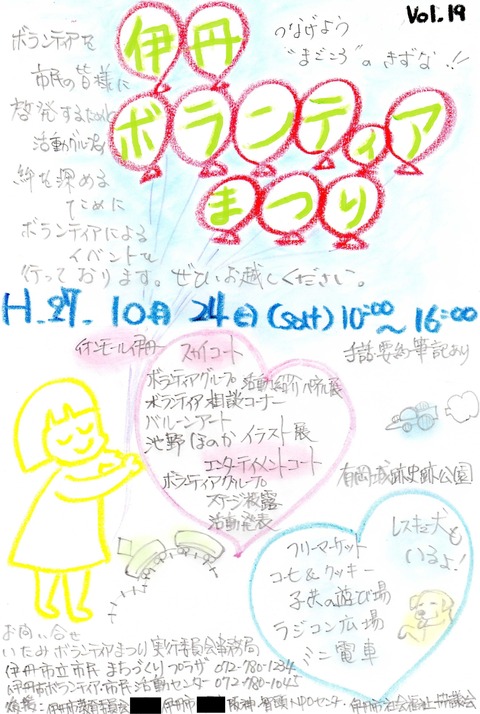 Vol.19
伊丹
ボランティア
まつり
つなげよう
"まごころ"のきずな!!
ボランティアを
市民の皆様に
啓発するために
活動グループの
絆を深める
ために
ボランティアによる
イベントで
行っております。ぜひお越しください。
H.27.10月24(土)(Sat)10:00〜16:00
イオンモール伊丹 スカイコート
手話・要約筆記あり
ボランティアグループ活動紹介パネル展
ボランティア相談コーナー
バルーンアート
池野ほのか イラスト展
エンターテイメントコート
ボランティアグループの
ステージ披露
活動発表
有岡城跡史跡公園
レスキュー犬も
いるよ!
フリーマーケット
コーヒー&クッキー
子供の遊び場
ラジコン広場
ミニ電車
お問い合せ
いたみボランティアまつり実行委員会事務局
伊丹市立市民まちづくりプラザ 072-780-1234
伊丹市ボランティア・市民活動センター 072-780-1045
後援:伊丹市教育委員会 伊丹市 阪神・智頭NPOセンター・伊丹市社会福祉協議会